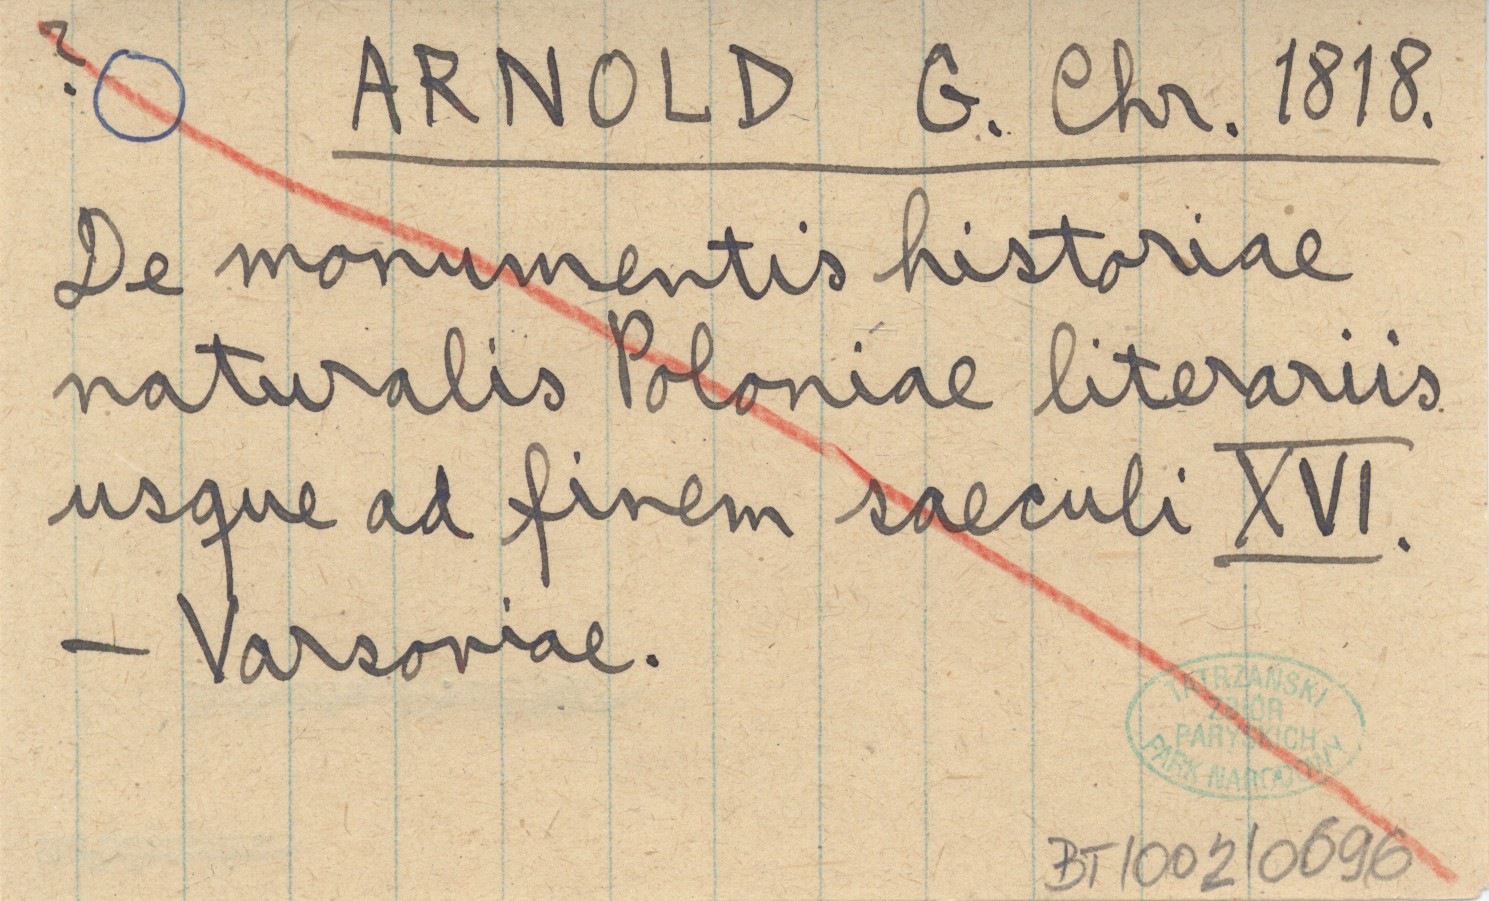 ?
ARNOLD G. Chr. 1818.
De monumentis historiae
naturalis Poloniae literariis
usque ad finem saeculi XVI.
— Varsoviae.
TATRZAŃSKI
ZBIÓR
PARYSKICH
PARK NARODOWY
BT/002/0696